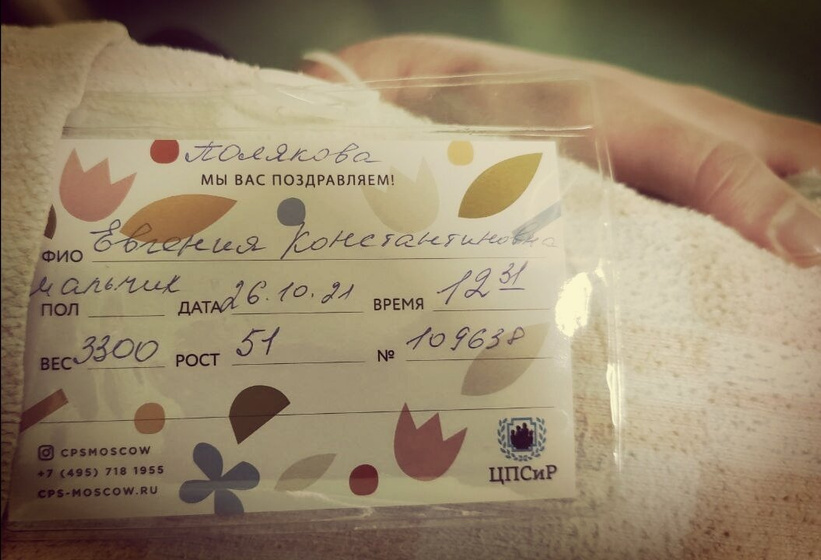 Полякова
МЫ ВАС ПОЗДРАВЛЯЕМ!
ФИО Евгения Константиновна
мальчик
ПОЛ ДАТА 26.10.21 ВРЕМЯ 12 31
ВЕС 3300 РОСТ 51 № 109638
CPSMOSCOW
+7 (495) 718 1955
CPS-MOSCOW.RU
ЦПСиР